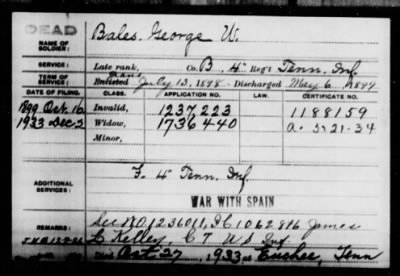 DEAD
NAME OF SOLDIER: Bales, George W.
SERVICE: Late rank, Co. B, 4" Reg't Tenn. Inf.
TERM OF SERVICE: Enlisted July 13, 1898. Discharged May 6, 1899
DATE OF FILING. CLASS. APPLICATION NO. LAW. CERTIFICATE NO.
1899 Oct. 16 Invalid, 1237223 1188159
1933 Dec 2 Widow, 1736440 a. 5-21-34
Minor,
ADDITIONAL SERVICES: F. 4" Tenn. Inf.
WAR WITH SPAIN
REMARKS: See 1236011, 1062896 James
L. Kelley, C 7 U S Inf
Died Oct. 27, 1933 at Euchee, Tenn